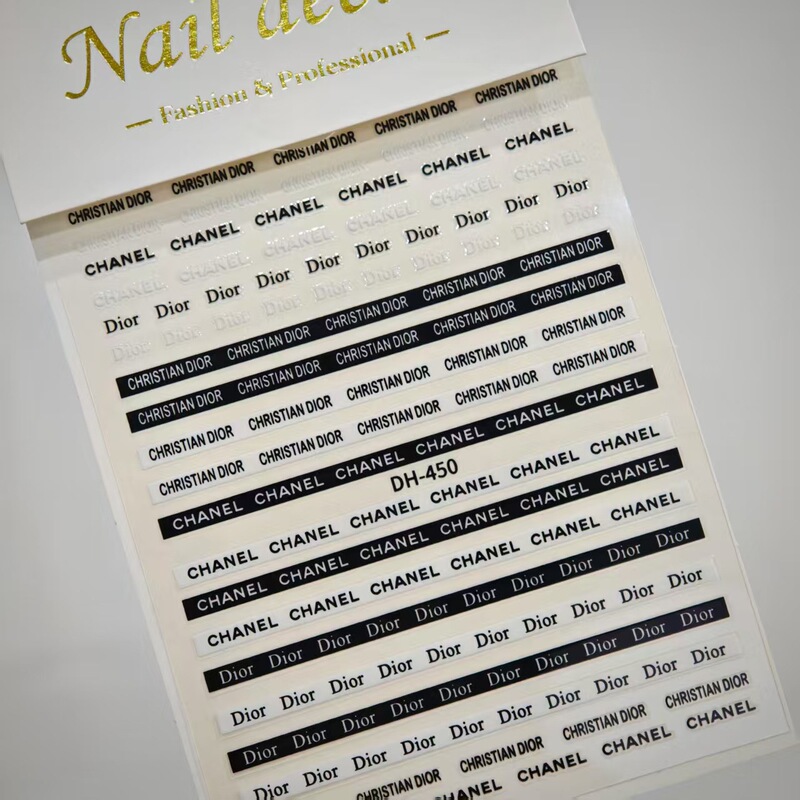 Nail
— Fashion & Professional —
CHRISTIAN DIOR CHRISTIAN DIOR CHRISTIAN DIOR CHRISTIAN DIOR CHRISTIAN DIOR
CHRISTIAN DIOR CHRISTIAN DIOR CHRISTIAN DIOR CHRISTIAN DIOR CHRISTIAN DIOR
CHANEL CHANEL CHANEL CHANEL CHANEL CHANEL
CHANEL CHANEL CHANEL CHANEL CHANEL CHANEL
Dior Dior Dior Dior Dior Dior Dior Dior Dior Dior
Dior Dior Dior Dior Dior Dior Dior Dior Dior Dior
CHRISTIAN DIOR CHRISTIAN DIOR CHRISTIAN DIOR CHRISTIAN DIOR CHRISTIAN DIOR
CHRISTIAN DIOR CHRISTIAN DIOR CHRISTIAN DIOR CHRISTIAN DIOR CHRISTIAN DIOR
CHRISTIAN DIOR CHRISTIAN DIOR CHRISTIAN DIOR CHRISTIAN DIOR CHRISTIAN DIOR
CHRISTIAN DIOR CHRISTIAN DIOR CHRISTIAN DIOR CHRISTIAN DIOR CHRISTIAN DIOR
CHANEL CHANEL CHANEL CHANEL CHANEL CHANEL
DH-450
CHANEL CHANEL CHANEL CHANEL CHANEL CHANEL
CHANEL CHANEL CHANEL CHANEL CHANEL CHANEL
CHANEL CHANEL CHANEL CHANEL CHANEL CHANEL
Dior Dior Dior Dior Dior Dior Dior Dior Dior Dior
Dior Dior Dior Dior Dior Dior Dior Dior Dior Dior
Dior Dior Dior Dior Dior Dior Dior Dior Dior Dior
Dior Dior Dior Dior Dior Dior Dior Dior Dior Dior
CHRISTIAN DIOR CHRISTIAN DIOR CHRISTIAN DIOR CHRISTIAN DIOR
CHANEL CHANEL CHANEL CHANEL